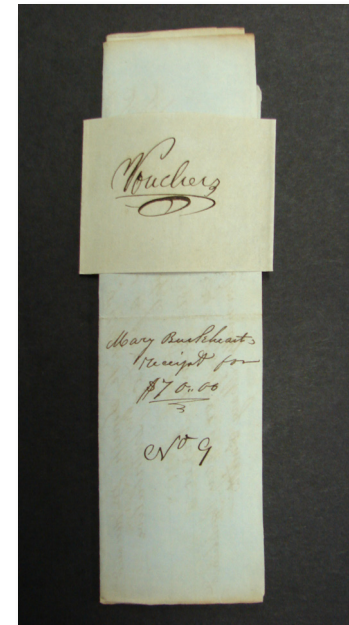 Vouchers
Mary Burkhearts
receipt for
$70.00
No 9